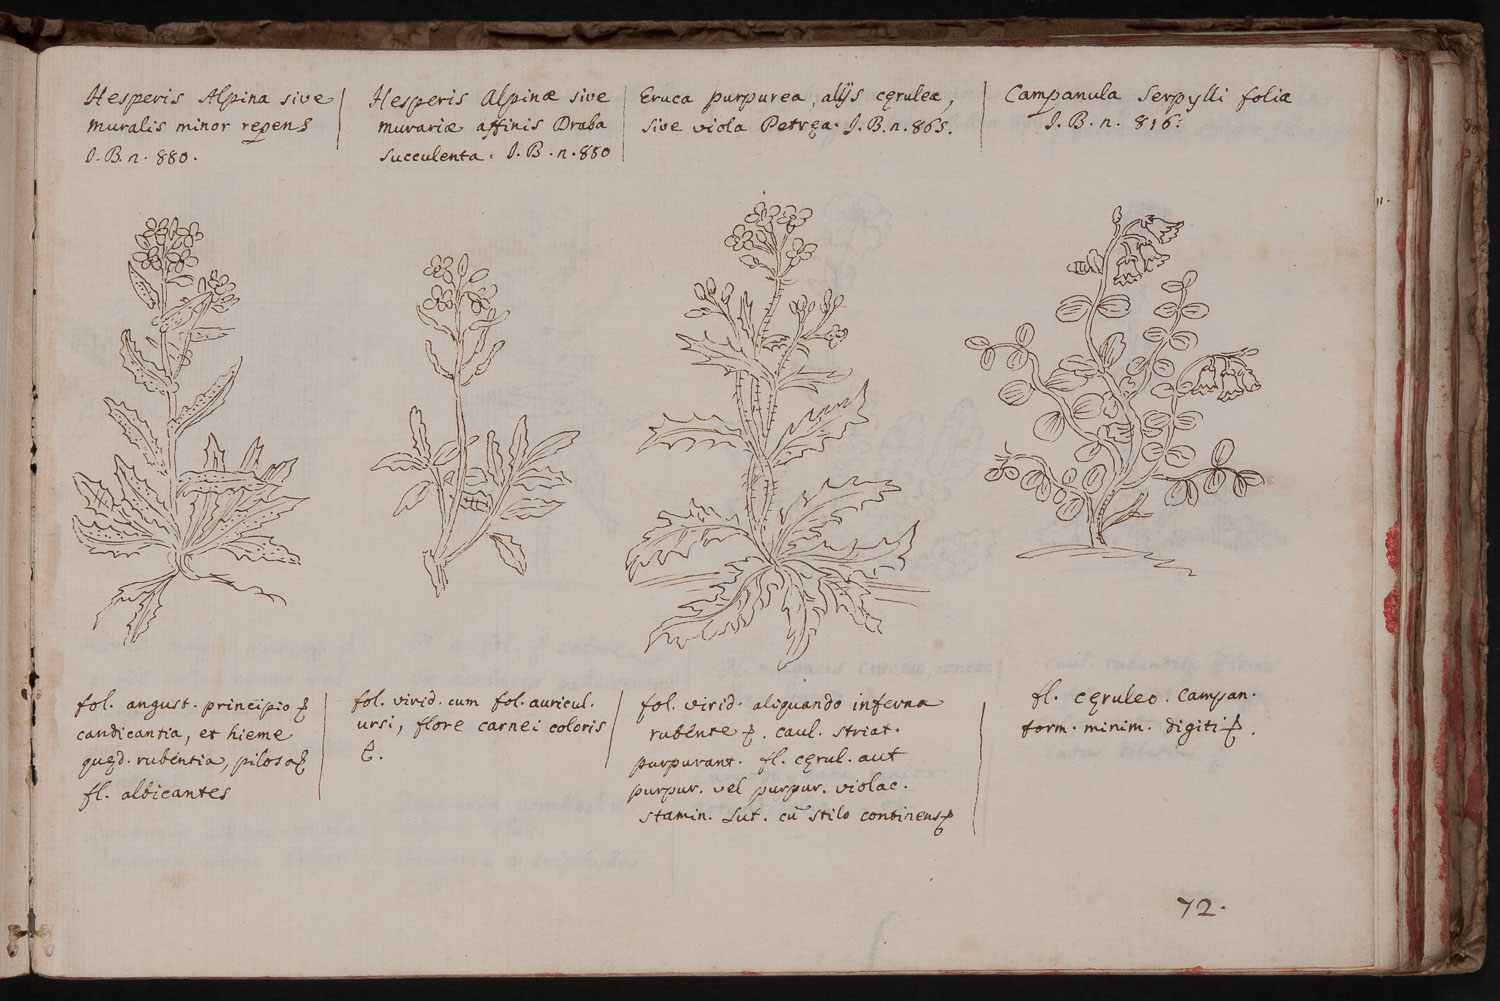 Hesperis Alpina sive
muralis minor repens
I.B.n. 880.
Hesperis Alpinæ sive
murariæ affinis Draba
succulenta. I.B.n. 880
Eruca purpurea, alijs cęrulea,
sive viola Petręa. I.B.n. 865.
Campanula Serpylli foliæ
I.B.n. 816.
fol. angust. principio
candicantia, et hieme
quęd. rubentia, pilosa
fl. albicantes
fol. virid. cum fol. auricul.
ursi, flore carnei coloris
fol. virid. aliquando inferna
rubente. caul. striat.
purpurant. fl. cęrul. aut
purpur. vel purpur. violac.
stamin. lut. cū stilo continens
fl. cęruleo. campan.
form. minim. digiti.
72.